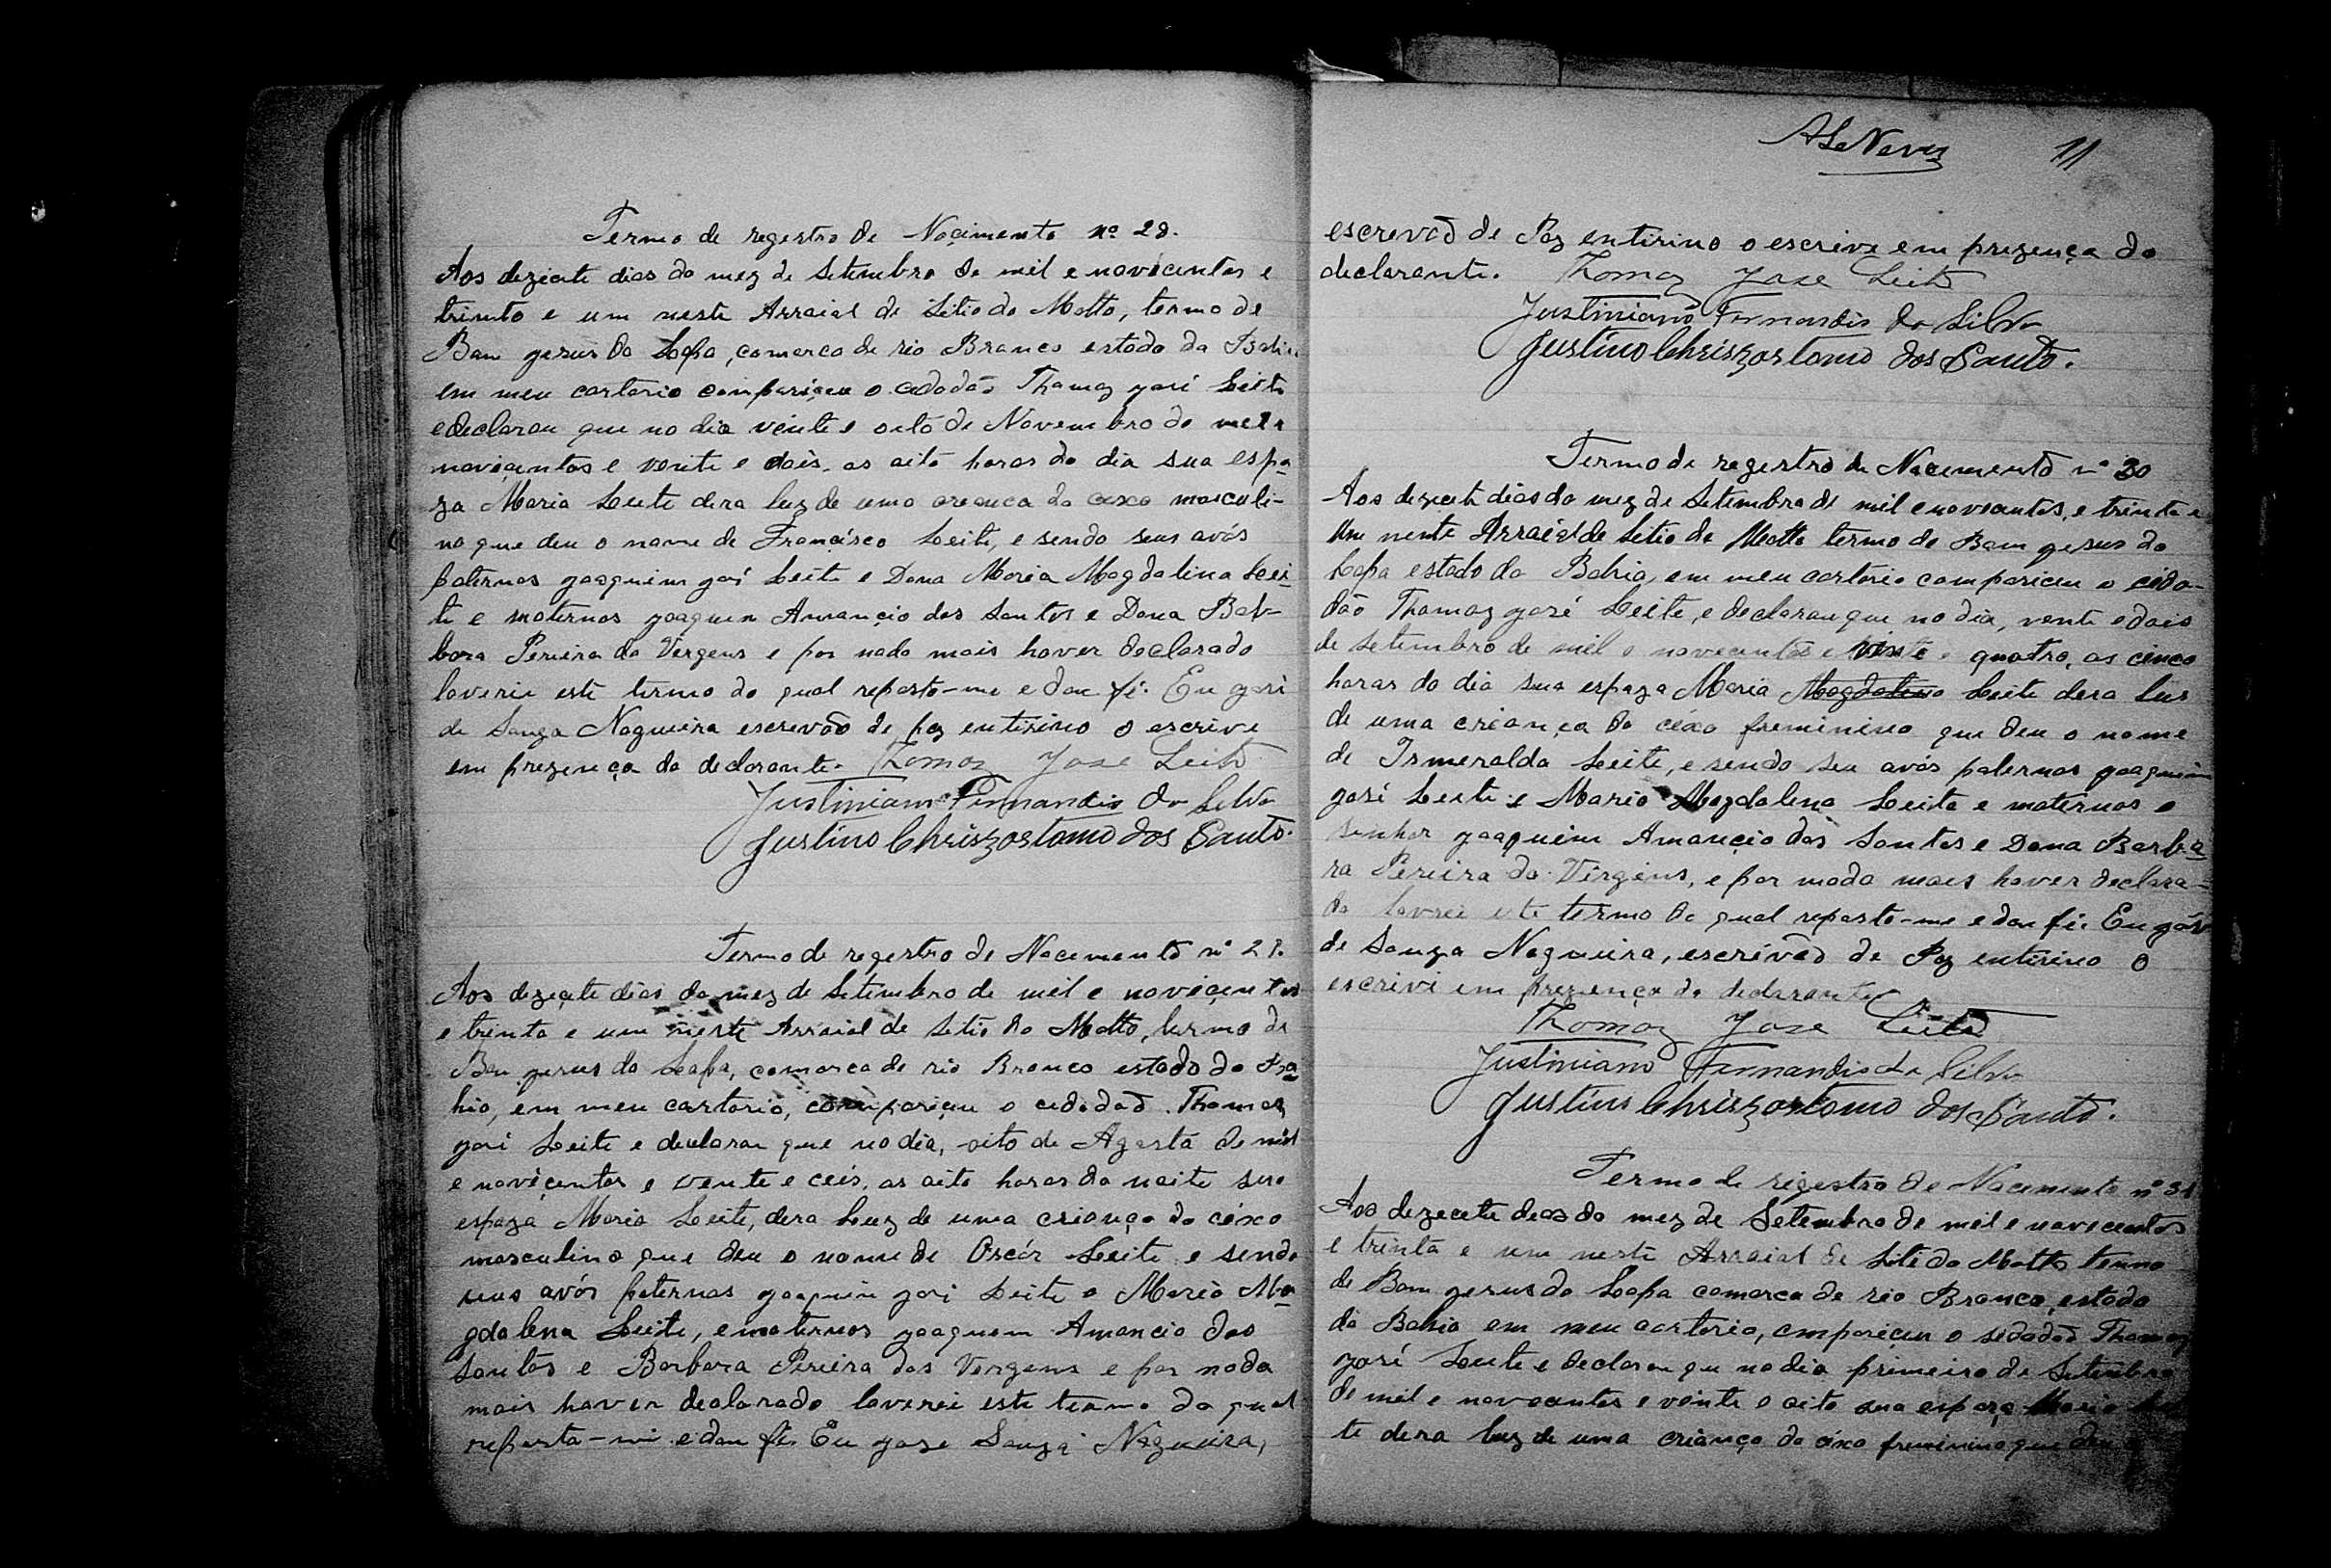 Termo de registro de Nacimento nº 28.
Aos dezecete dias do mez de Setembro de mil e novicentos e
trinta e um neste Arraial de Sitio do Matto, termo de
Bam gesus da Lapa, comarca de rio Branco estado da Bahia
em meu cartorio compariçeu o cidadão Thamaz josé Leite
e declarou que no dia vente e oito de Novembro de mil e
noviçentos e vente e dois, as oito horas do dia sua espo
za Maria Leite dera luz de uma creança do cexo masculi-
no que deu o nome de Françisco Leite, e sendo seus avós
paternos joaquim josé Leite e Dona Maria Magdalina Lei-
te e maternos joaquem Amançio dos Santos e Dona Bar-
bara Pereira da Vergens e por nada mais haver declarado
laverei este termo do qual reporto-me e dou fé. Eu josé
de Souza Nogueira escrevão de paz entirino o escrive
em prezença do declarante. Thomaz Jose Leite
Justiniano Fernandis da Silva
Justino Chriszostomo dos Santo.
Termo de registro de Nacemento nº 29.
Aos dezeçete dias do mez de Setembro de mil e noviçentos
e trenta e um neste Arraial de Setio do Matto, termo de
Bom jesus da Leapa, comarca de rio Branco estado da Ba
hia, em meu cartorio, compariçeu o cidadão Thamaz
josé Leite e declarou que no dia, oito de Agosto de mil
e noviçentos e vente e ceis, as oito horas da noite sua
espoza Maria Leite, dera luz de uma criança do cexo
masculino que deu o nome de Oscár Leite e sendo
seus avós paternos joaquim josi Leite e Maria Ma
gdalena Leite, e maternos joaquem Amancio dos
Santos e Barbara Pereira das Vergens e por nada
mais haver declarado laverei este termo do qual
reporto-me e dou fé. Eu joze Souza Nogueira,
ALeNeves 11
escrevão de Paz entirino o escrive em prezença do
declarante. Thomaz Jose Leite
Justiniano Fernandis da Silva
Justino Chriszostomo dos Santo.
Termo de registro de Nacemento nº 30
Aos dezecete dias do mez de Setembro de mil e novecentos, e trinta e
um neste Arraial de Sitio do Matto termo de Bam gesus da
Lapa estado da Bahia, em meu cartorio compariceu o cida-
dão Thamaz josé Leite, e declarou que no dia, vente e dois
de setembro de mil e novecentos e vinte e quatro, as cinco
horas do dia sua espoza Maria Magdalena Leite dera luz
de uma criança do cexo freminino que deu o nome
de Ismeralda Leite, e sendo seu avós paternos joaquim
josé Leite e Maria Magdalena Leite e maternos o
senhor joaquim Amançio dos Santos e Dona Barba
ra Pereira da Virgens, e por nada maes haver declara-
do lavrei este termo do qual reporto-me e dou fé. Eu josé
de Souza Nogueira, escrivão de Paz entirino o
escrivi em prezença do declarante
Thomaz Jose Leite
Justiniano Fernandis da Silva
Justino Chriszostomo dos Santo.
Termo de rigestro de Nacemento nº 31
Aos dezecete dias do mez de Setembro de mil e novecentos
e trinta e um neste Arraial de Sitio do Matto termo
de Bom gesus da Leapa comarca de rio Branco, estado
da Bahia em meu cartorio, compariçeu o sidadão Thamaz
josé Leite e declarou que no dia primeiro de Setembro
de mil e novecentos e vinte e oito sua espoza Maria Lei
te dera luz de uma criança do cexo freminino que deu o